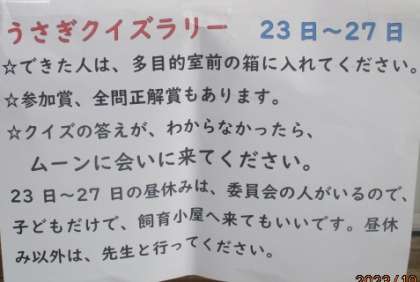 うさぎクイズラリー　23日～27日
☆できた人は、多目的室前の箱に入れてください。
☆参加賞、全問正解賞もあります。
☆クイズの答えが、わからなかったら、
ムーンに会いに来てください。
23日～27日の昼休みは、委員会の人がいるので、
子どもだけで、飼育小屋へ来てもいいです。昼休
み以外は、先生と行ってください。